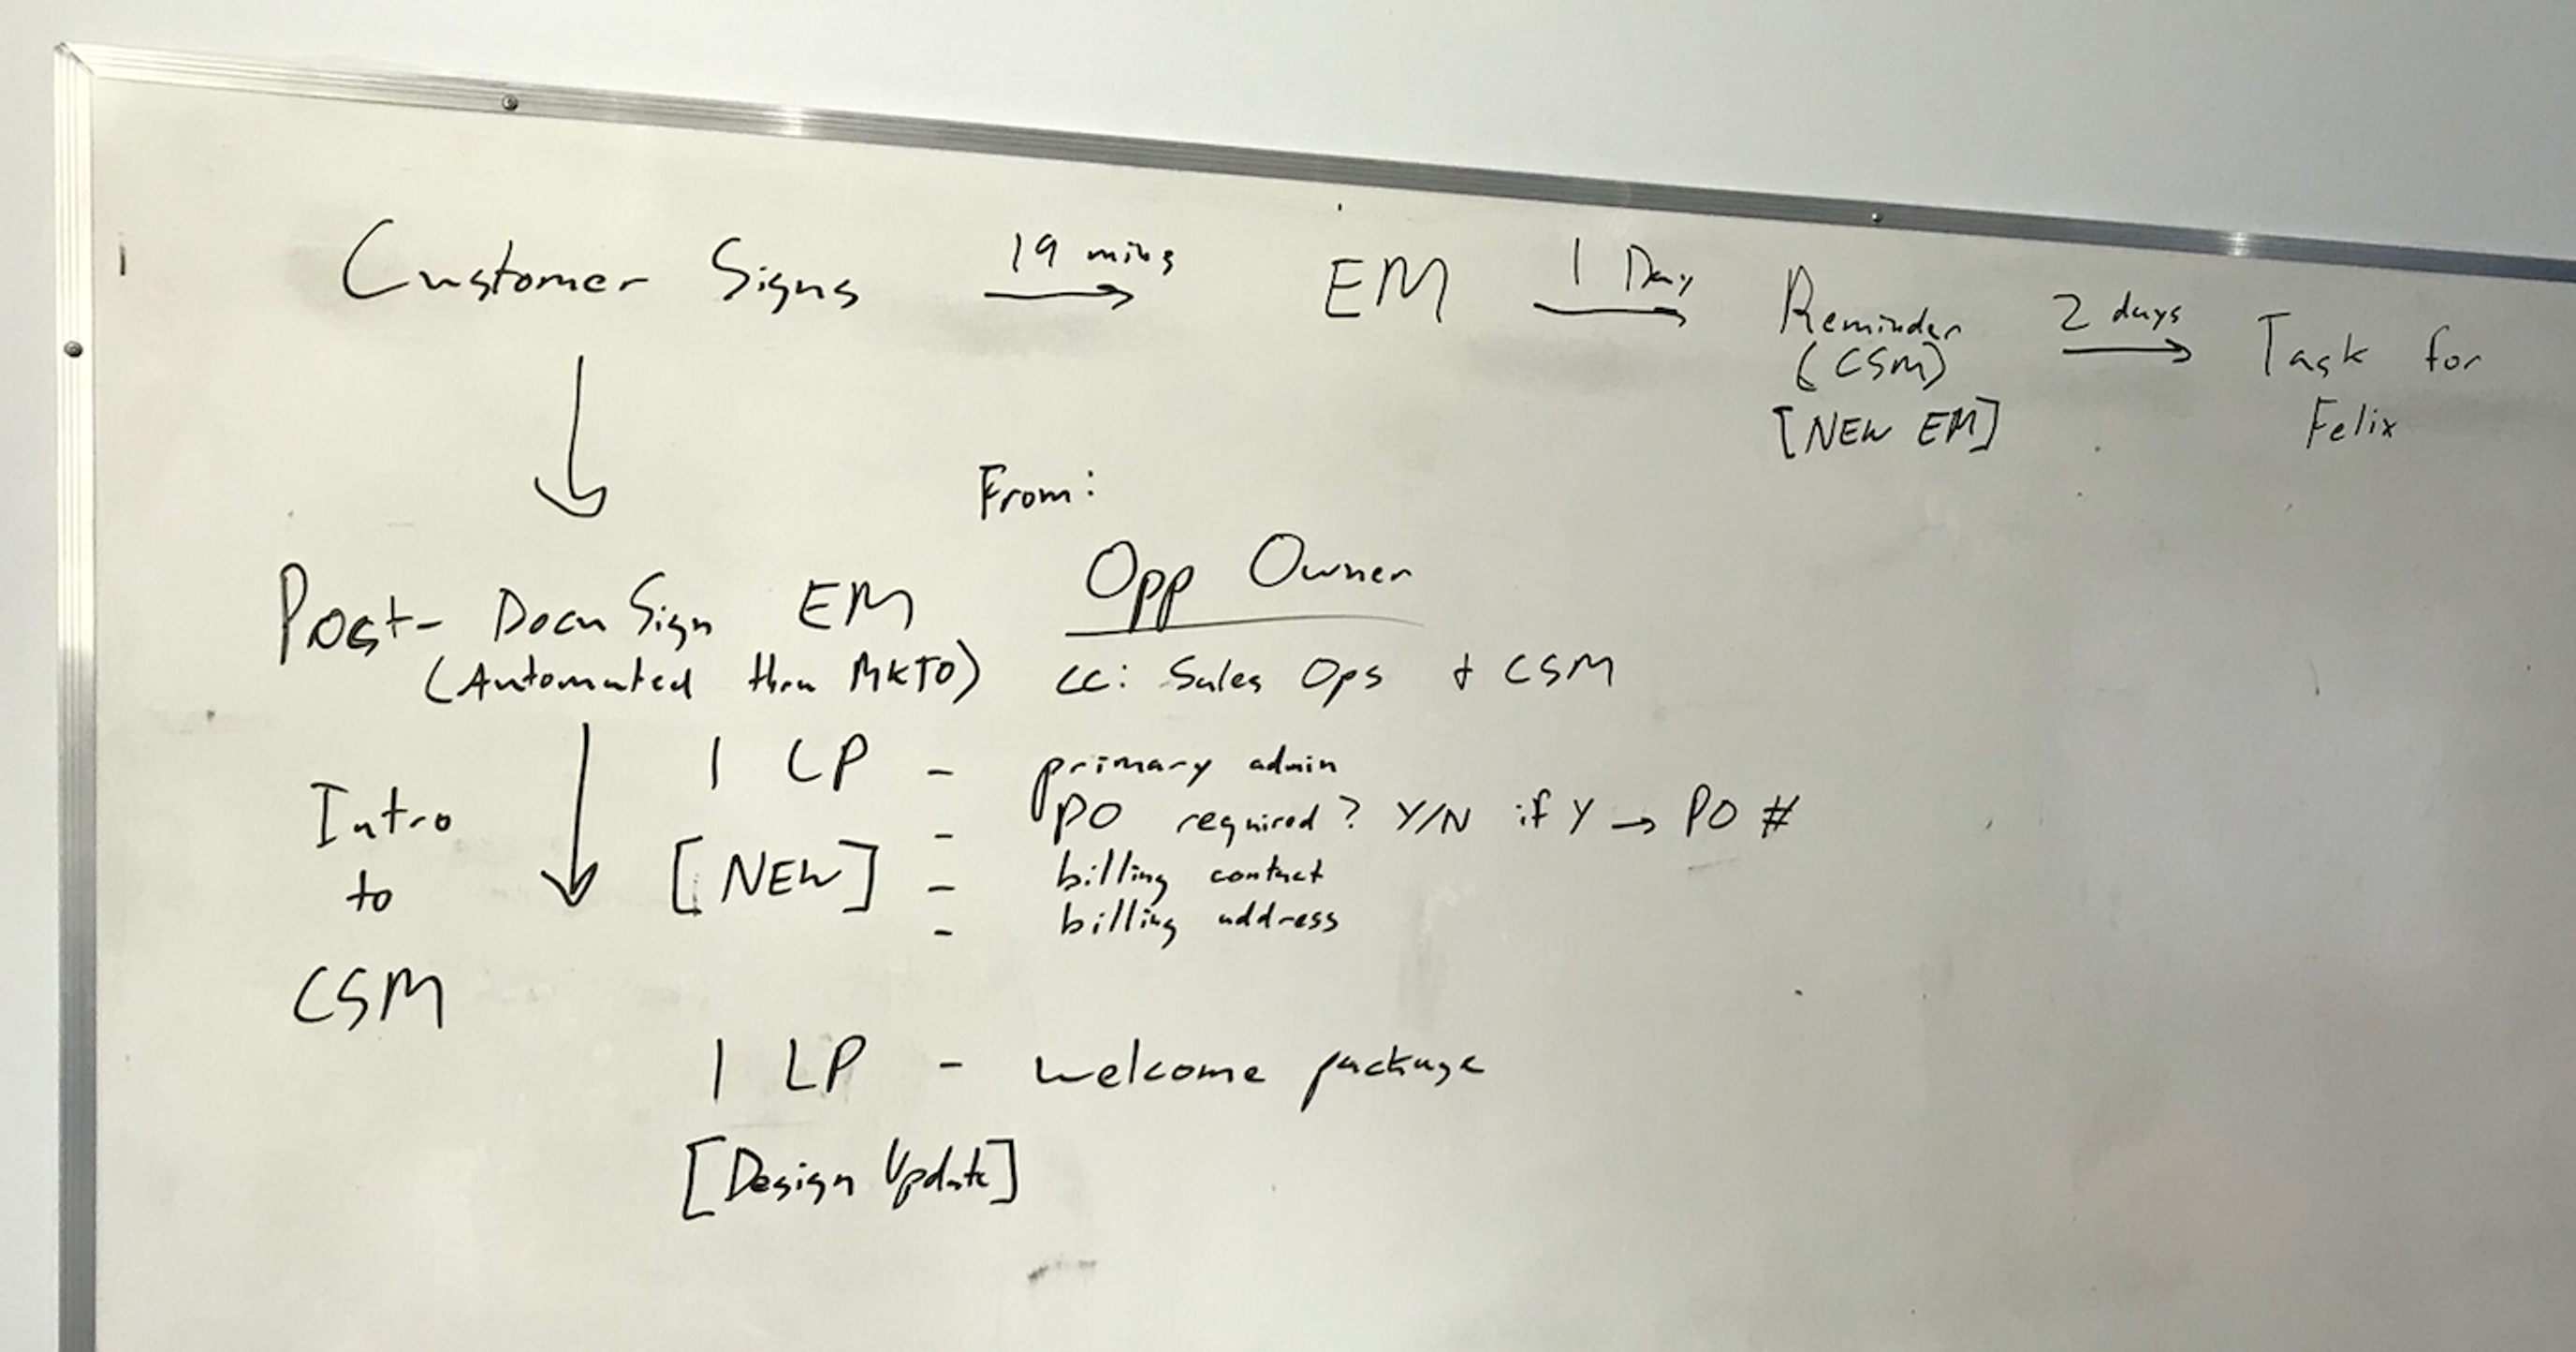 Customer Signs 19 mins → EM 1 Day → Reminder 2 days → Task for
(CSM)
[NEW EM]
Felix
From:
Opp Owner
Post-DocuSign EM
(Automated thru MKTO) cc: Sales Ops + CSM
1 LP - primary admin
- PO required? Y/N if Y → PO #
[NEW] - billing contact
- billing address
Intro
to
CSM
1 LP - welcome package
[Design Update]